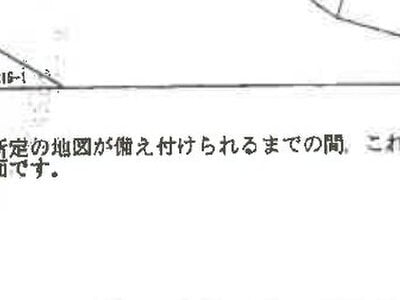 16-1
定の地図が備え付けられるまでの間，これ
面です。